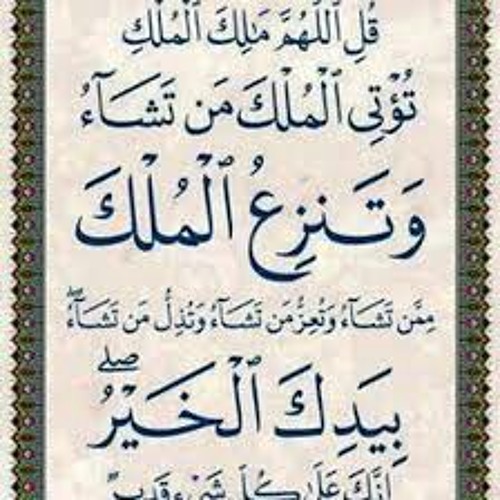 قُلِ ٱللَّهُمَّ مَٰلِكَ ٱلْمُلْكِ
تُؤْتِى ٱلْمُلْكَ مَن تَشَآءُ
وَتَنزِعُ ٱلْمُلْكَ
مِمَّن تَشَآءُ وَتُعِزُّ مَن تَشَآءُ وَتُذِلُّ مَن تَشَآءُۖ
بِيَدِكَ ٱلْخَيْرُۖ
إِنَّكَ عَلَىٰ كُلِّ شَىْءٍ قَدِيرٌ